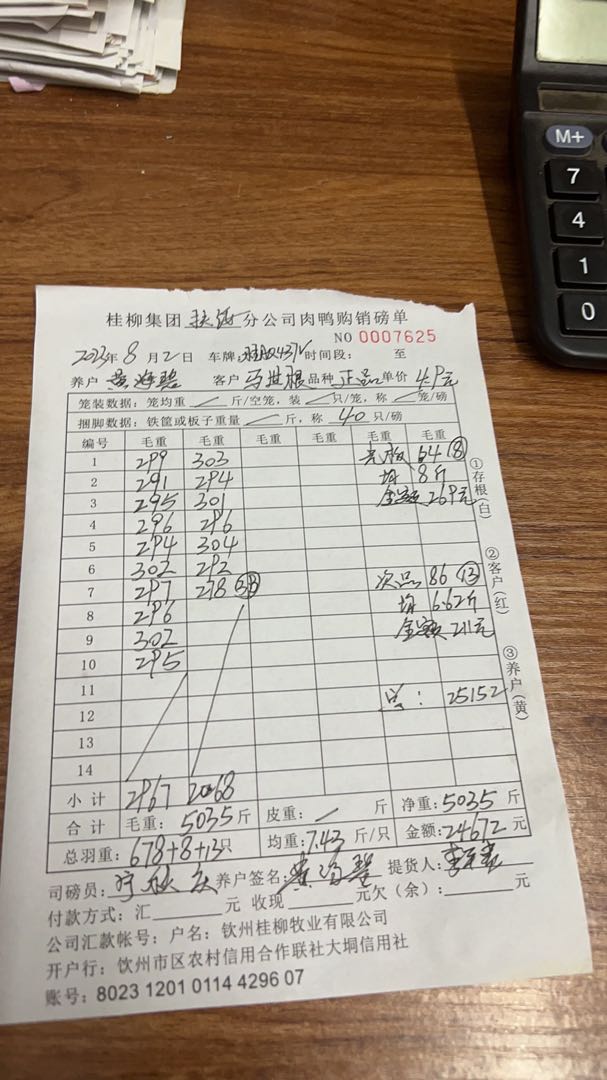 M+
7
4
1
0
桂柳集团 分公司肉鸭购销磅单
NO 0007625
2023年 8 月 2 日 车牌: 时间段: 至
养户 客户 马世根 品种 正品 单价 4.9元
笼装数据: 笼均重 斤/空笼, 装 只/笼, 称 笼/磅
捆脚数据: 铁筐或板子重量 斤, 称 40 只/磅
编号 毛重 毛重 毛重 毛重 毛重 毛重
1 299 303 64 ⑧
2 291 294 均 8斤
3 295 301 金额 269元
4 296 296
5 294 304
6 302 292
7 297 278 38 次品 86 ⑬
8 296 均 6.62斤
9 302 金额 211元
10 295
11
12 总: 25152
13
14
小计 2967 2068
合计 毛重: 5035斤 皮重: 斤 净重: 5035 斤
总羽重: 678+8+13只 均重: 7.43 斤/只 金额: 24672 元
司磅员: 养户签名: 提货人:
付款方式: 汇 元 收现 元欠(余): 元
公司汇款帐号: 户名: 钦州桂柳牧业有限公司
开户行: 钦州市区农村信用合作联社大垌信用社
账号: 8023 1201 0114 4296 07
①存根(白)
②客户(红)
③养户(黄)